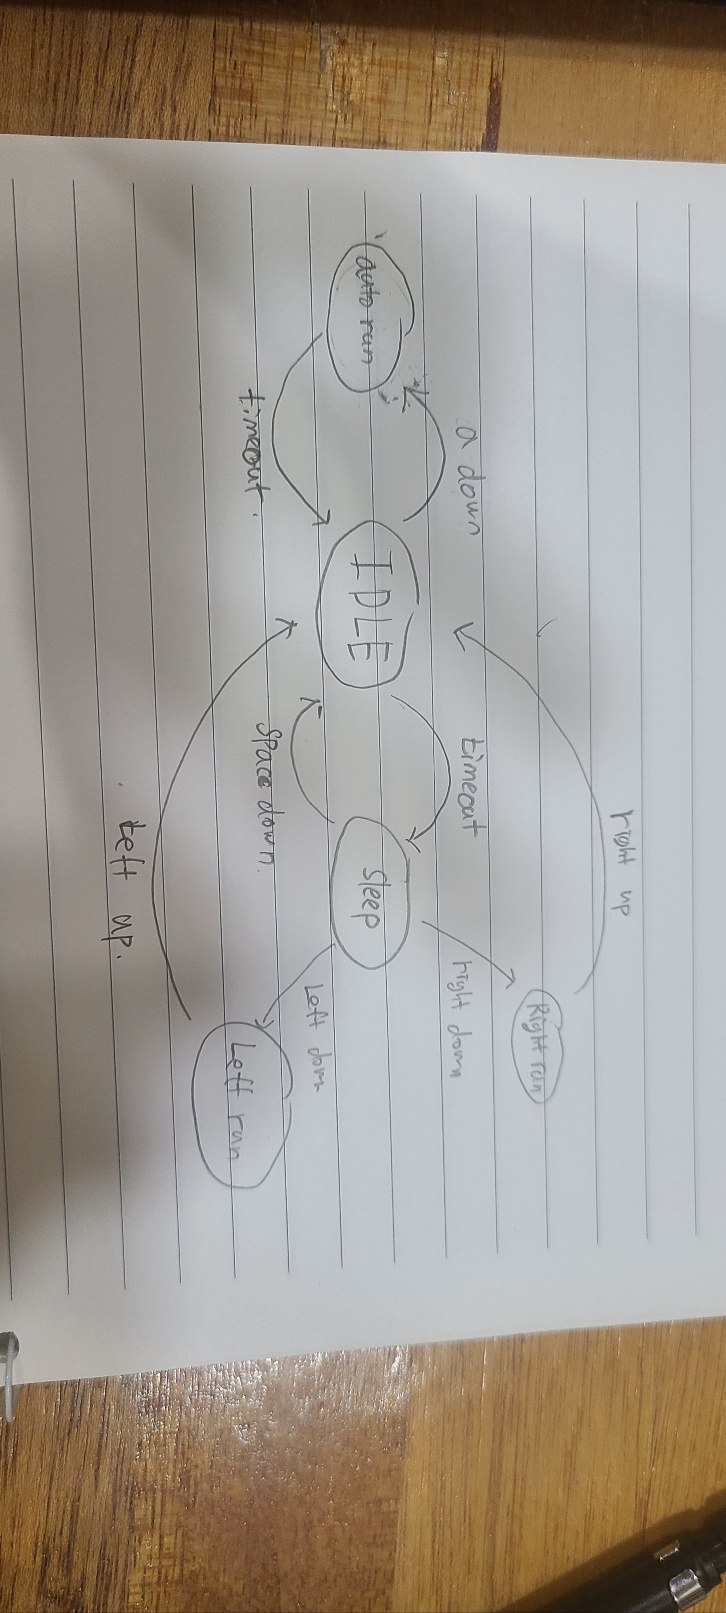 right up
Right run
a down
timeout
right down
auto run
IDLE
Sleep
Left down
timeout.
Space down.
Left run
Left up.